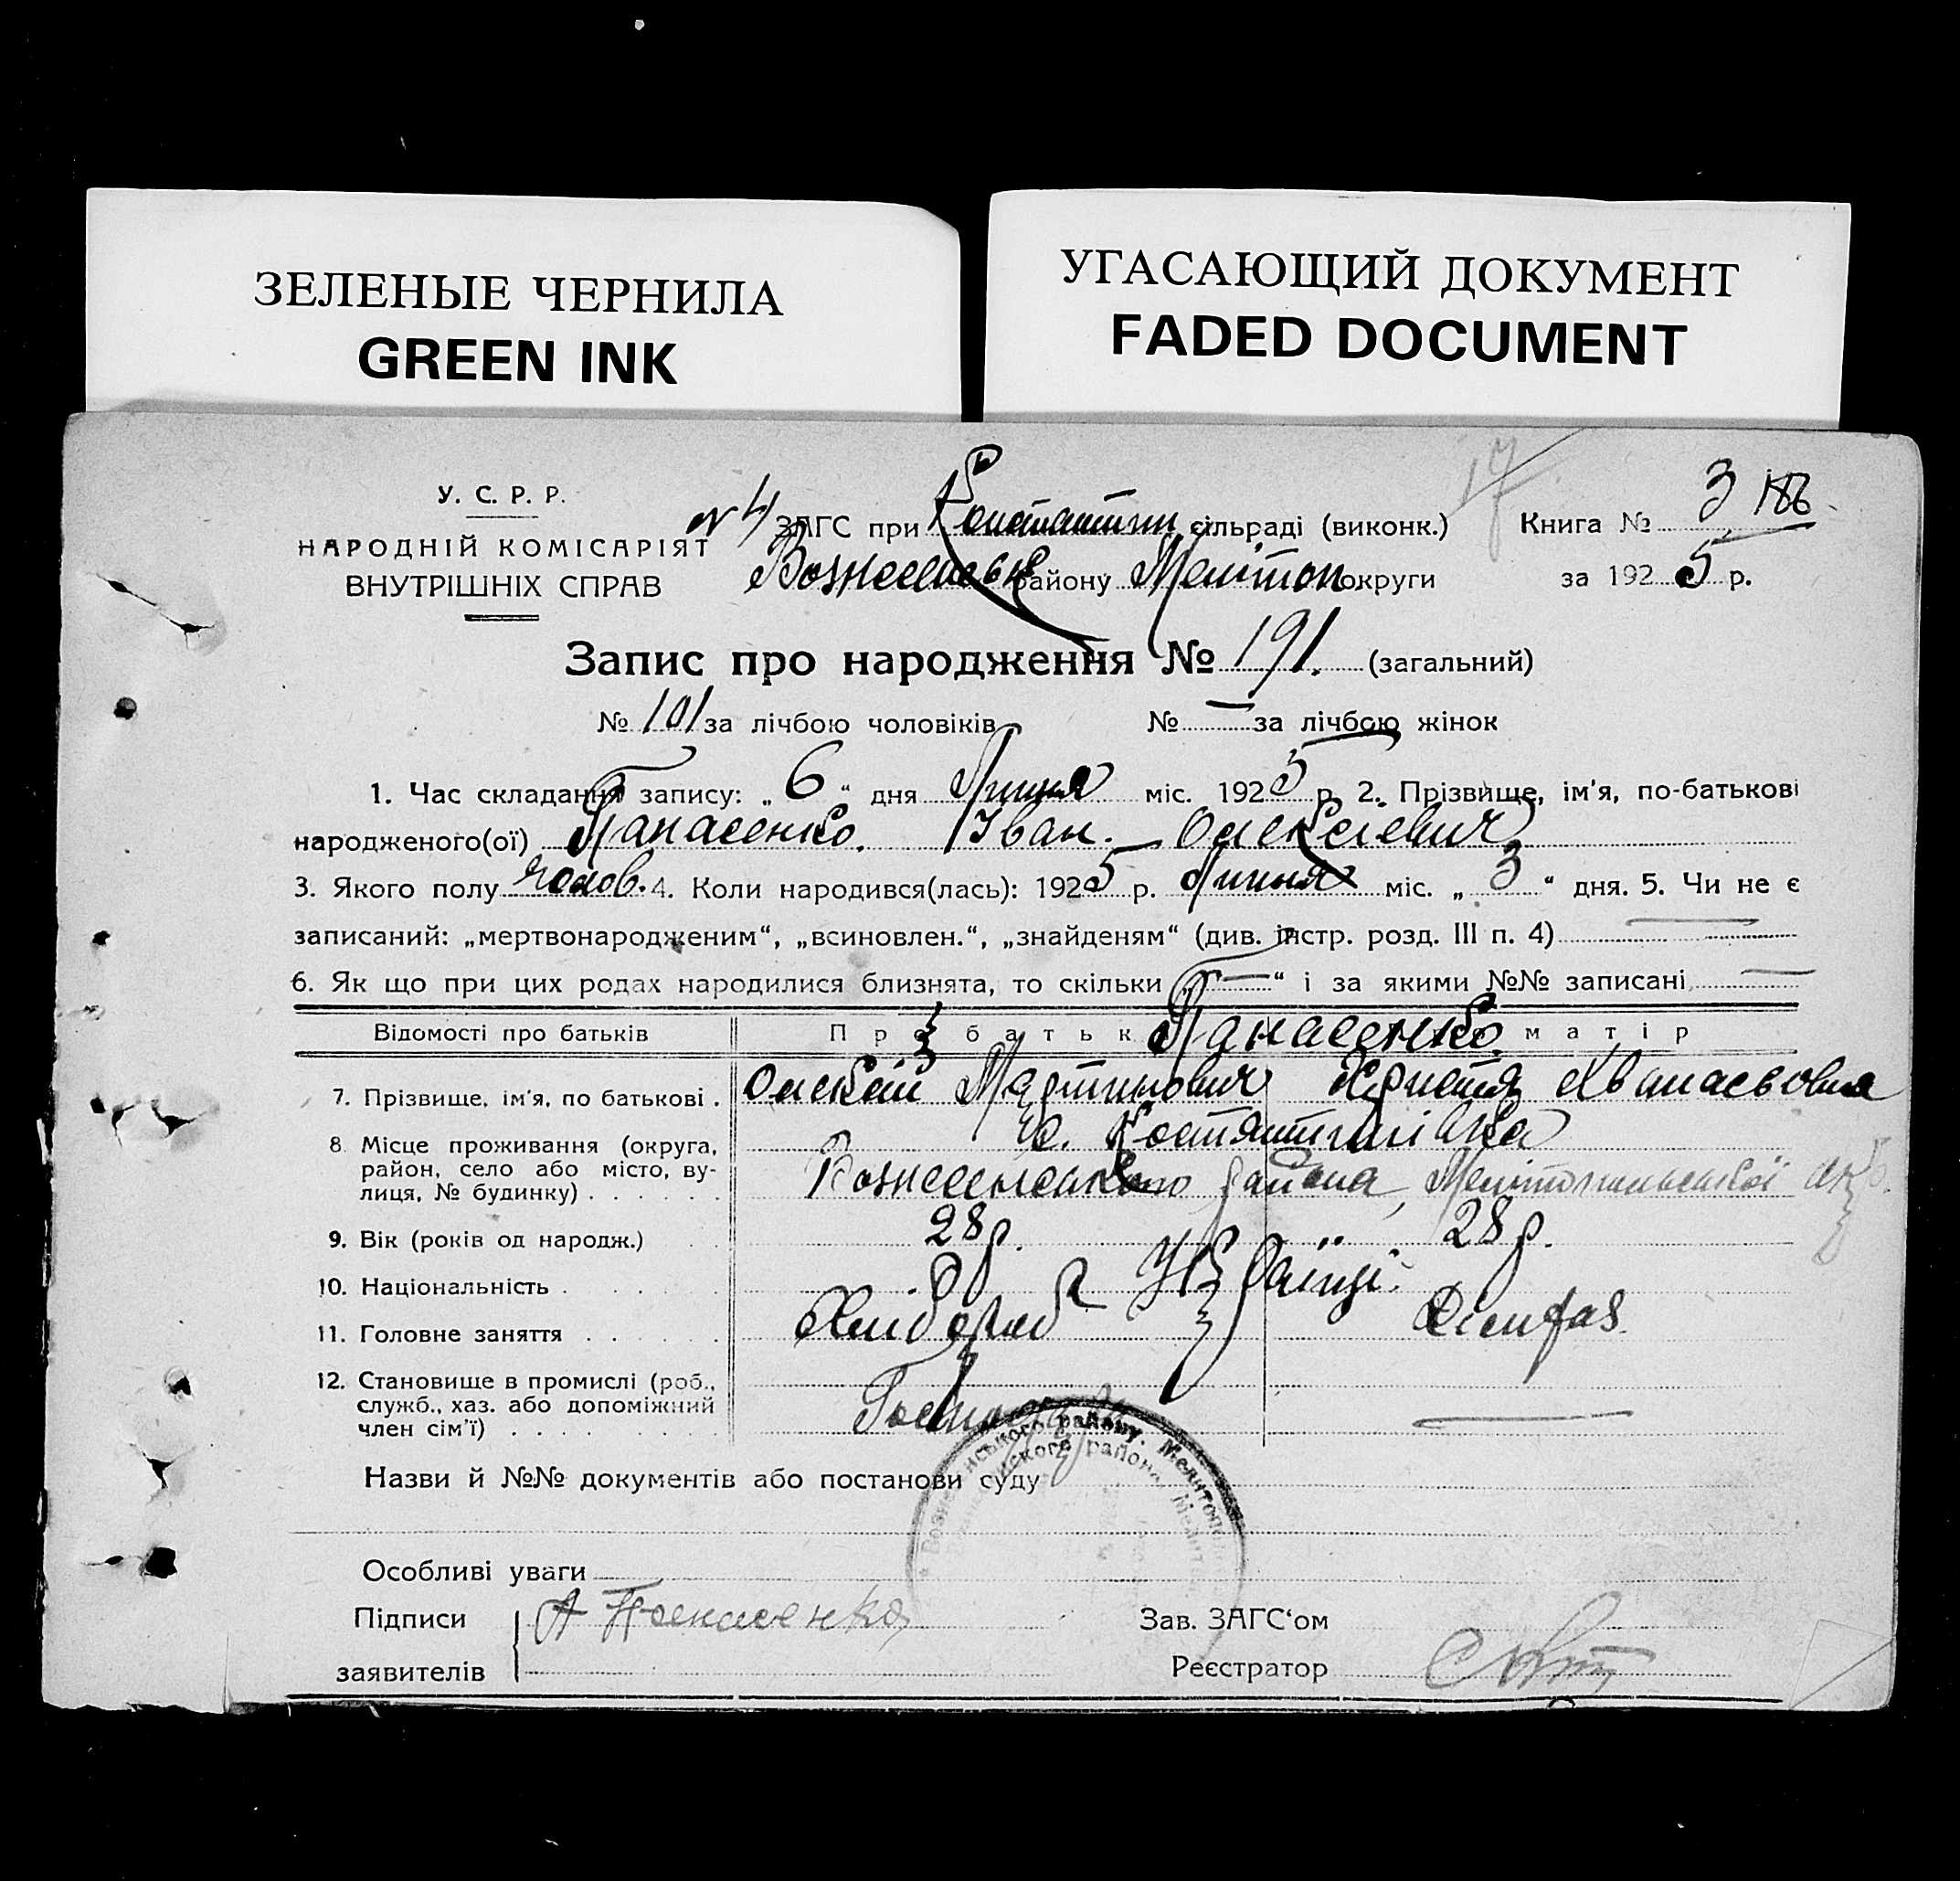 ЗЕЛЕНЫЕ ЧЕРНИЛА
GREEN INK
УГАСАЮЩИЙ ДОКУМЕНТ
FADED DOCUMENT
17
У. С. Р. Р.
НАРОДНІЙ КОМІСАРІЯТ
ВНУТРІШНІХ СПРАВ
№ 4 ЗАГС при Константин сільраді (виконк.) Книга № 3
Вознесенськ району Мелітоп. округи за 1925 р.
Запис про народження № 191. (загальний)
№ 101 за лічбою чоловіків № — за лічбою жінок
1. Час складання запису: „ 6 “ дня Липня міс. 1925 р. 2. Прізвище, ім'я, по-батькові
народженого(ої) Панасенко. Іван. Олексієвич
3. Якого полу чолов. 4. Коли народився(лась): 1925 р. Липня міс. „ 3 “ дня. 5. Чи не є
записаний: „мертвонародженим“, „всиновлен.“, „знайденям“ (див. інстр. розд. III п. 4) —
6. Як що при цих родах народилися близнята, то скільки „ — “ і за якими №№ записані —
Відомості про батьків Про батька Панасенко матір
7. Прізвище, ім'я, по батькові . Олексій Мартинович Христя Хванасьовна
8 Місце проживання (округа, район, село або місто, вулиця, № будинку) . . . . . . с. Костянтинівка
Вознесенського района, Мелітопільської окр.
9. Вік (років од народж.) 28 р. 28 р.
10. Національність . Українці.
11. Головне заняття . . . . . . Хлібороб
12. Становище в промислі (роб., служб., хаз. або допоміжний член сім'ї) . . . . Господар —
Назви й №№ документів або постанови суду
Вознесенського району. Мелітоп
району Меліт
Особливі уваги
Підписи А Панасенко Зав. ЗАГС‘ом
заявителів Реєстратор